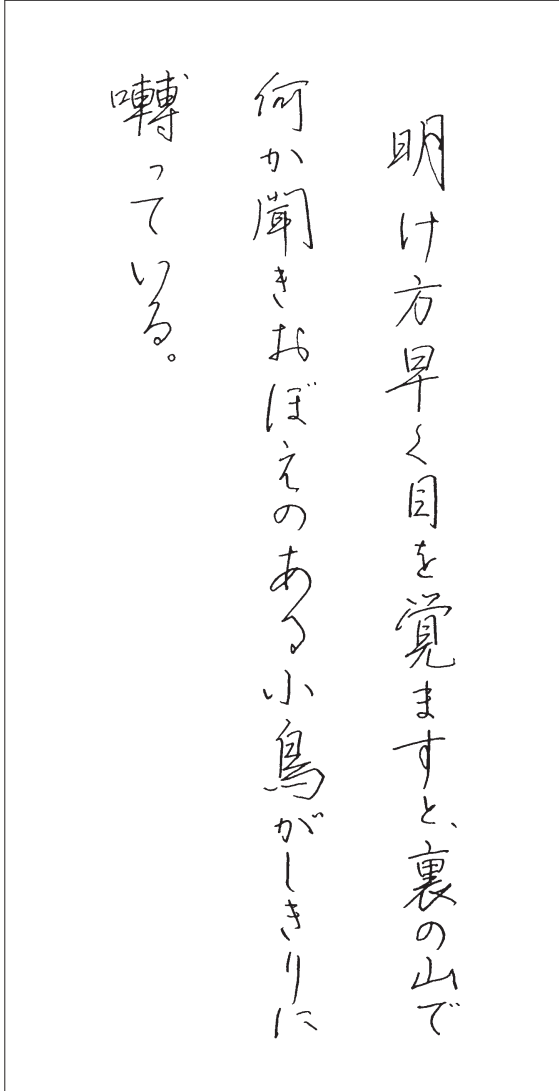 明け方早く目を覚ますと、裏の山で
何か聞きおぼえのある小鳥がしきりに
囀っている。